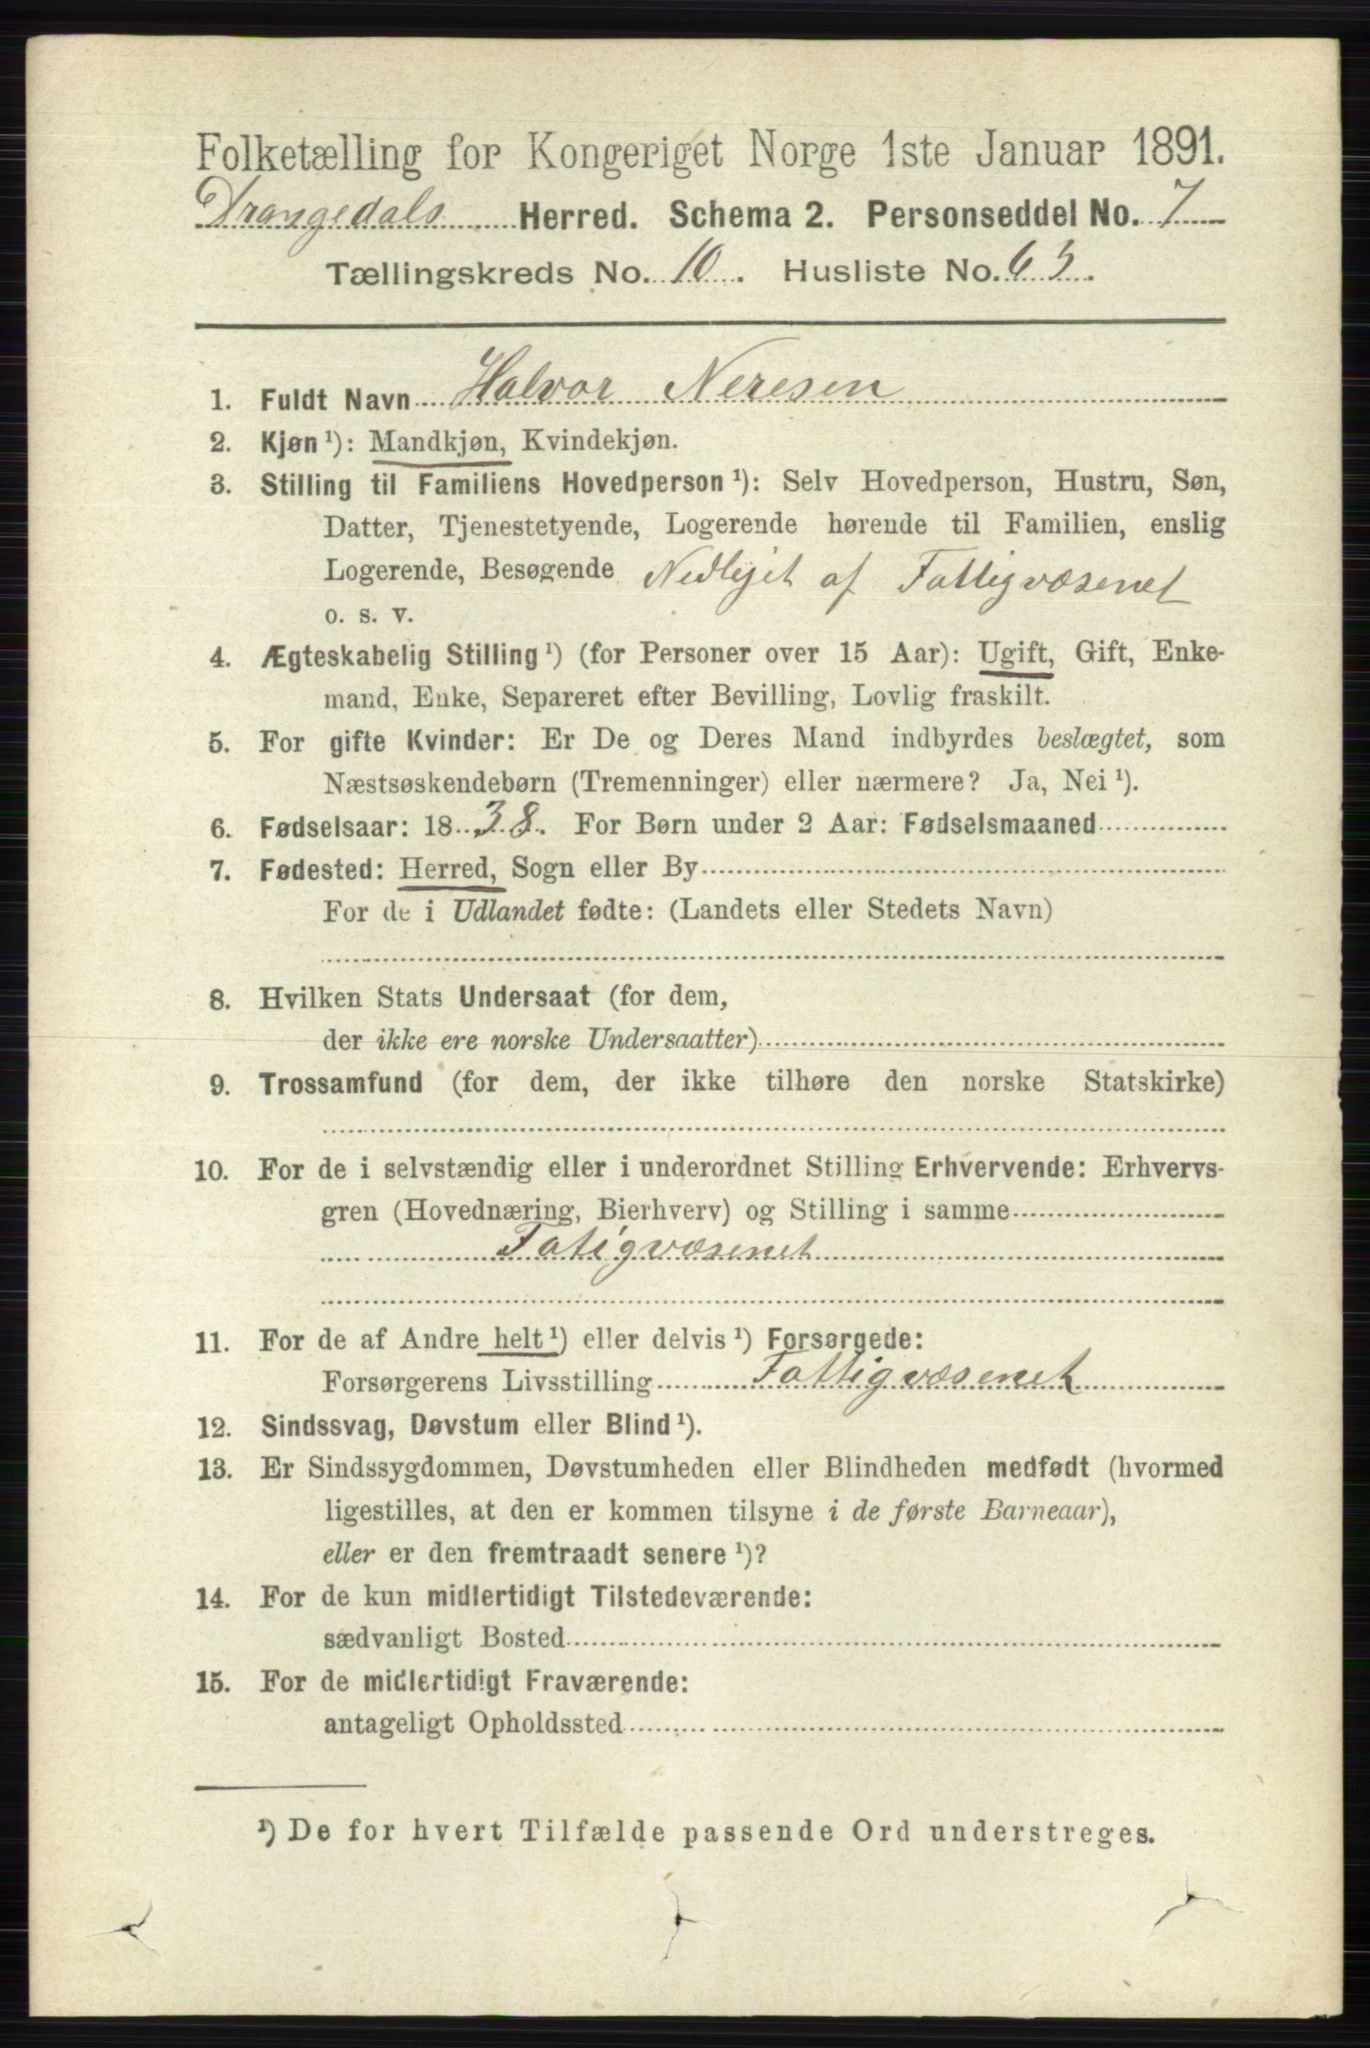 Folketælling for Kongeriget Norge 1ste Januar 1891.
Drangedals Herred. Schema 2. Personseddel No. 7
Tællingskreds No. 10. Husliste No. 63.
1. Fuldt Navn Halvor Neresen
2. Kjøn ¹): Mandkjøn, Kvindekjøn.
3. Stilling til Familiens Hovedperson ¹): Selv Hovedperson, Hustru, Søn,
Datter, Tjenestetyende, Logerende hørende til Familien, enslig
Logerende, Besøgende Nedlejet af Fattigvæsenet
o. s. v.
4. Ægteskabelig Stilling ¹) (for Personer over 15 Aar): Ugift, Gift, Enke-
mand, Enke, Separeret efter Bevilling, Lovlig fraskilt.
5. For gifte Kvinder: Er De og Deres Mand indbyrdes beslægtet, som
Næstsøskendebørn (Tremenninger) eller nærmere? Ja, Nei ¹).
6. Fødselsaar: 1838. For Børn under 2 Aar: Fødselsmaaned
7. Fødested: Herred, Sogn eller By
For de i Udlandet fødte: (Landets eller Stedets Navn)
8. Hvilken Stats Undersaat (for dem,
der ikke ere norske Undersaatter)
9. Trossamfund (for dem, der ikke tilhøre den norske Statskirke)
10. For de i selvstændig eller i underordnet Stilling Erhvervende: Erhvervs-
gren (Hovednæring, Bierhverv) og Stilling i samme
Fatigvæsenet
11. For de af Andre helt ¹) eller delvis ¹) Forsørgede:
Forsørgerens Livsstilling Fattigvæsenet
12. Sindssvag, Døvstum eller Blind ¹).
13. Er Sindssygdommen, Døvstumheden eller Blindheden medfødt (hvormed
ligestilles, at den er kommen tilsyne i de første Barneaar),
eller er den fremtraadt senere ¹)?
14. For de kun midlertidigt Tilstedeværende:
sædvanligt Bosted
15. For de midlertidigt Fraværende:
antageligt Opholdssted
¹) De for hvert Tilfælde passende Ord understreges.